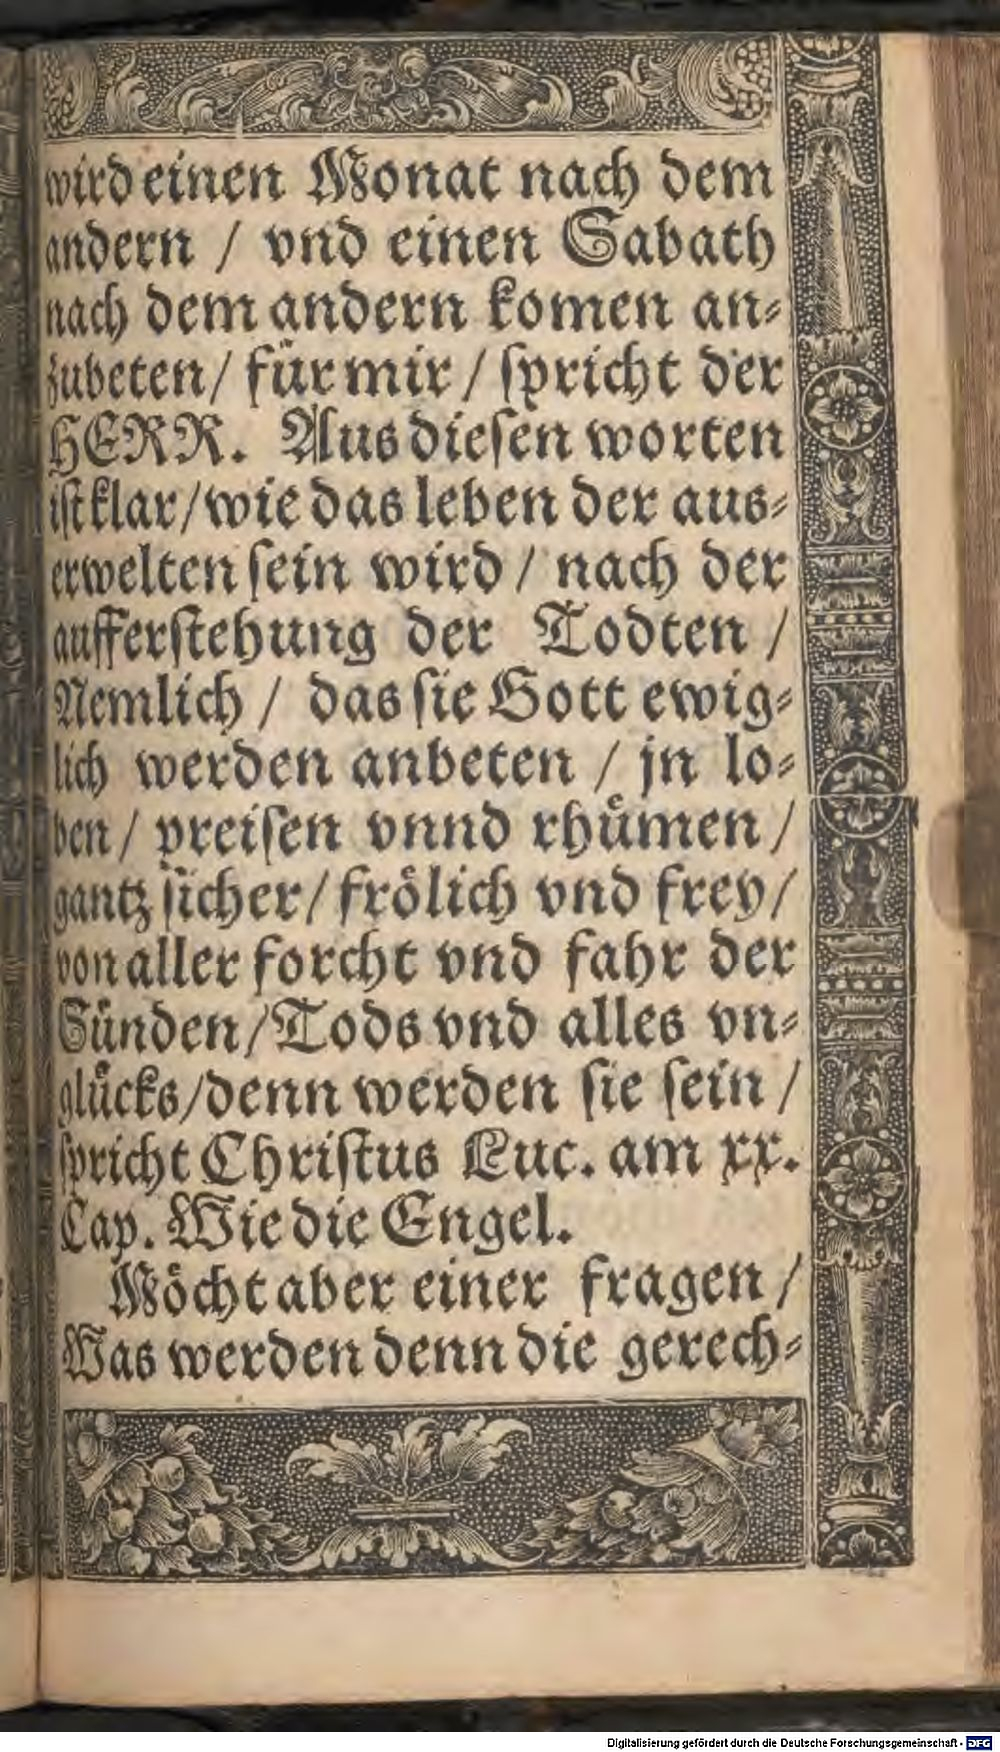 wird einen Monat nach dem
andern / vnd einen Sabath
nach dem andern komen an⸗
zubeten / für mir / ſpricht der
HERR. Aus dieſen worten
iſt klar / wie das leben der aus⸗
erwelten ſein wird / nach der
aufferſtehung der Todten /
Nemlich / das ſie Gott ewig⸗
lich werden anbeten / jn lo⸗
ben / preiſen vnnd rhuͤmen /
gantz ſicher / froͤlich vnd frey /
von aller forcht vnd fahr der
Sünden / Tods vnd alles vn⸗
gluͤcks / denn werden ſie ſein /
ſpricht Chriſtus Luc. am xx.
Cap. Wie die Engel.
Moͤcht aber einer fragen /
Was werden denn die gerech⸗
Digitalisierung gefördert durch die Deutsche Forschungsgemeinschaft - DFG